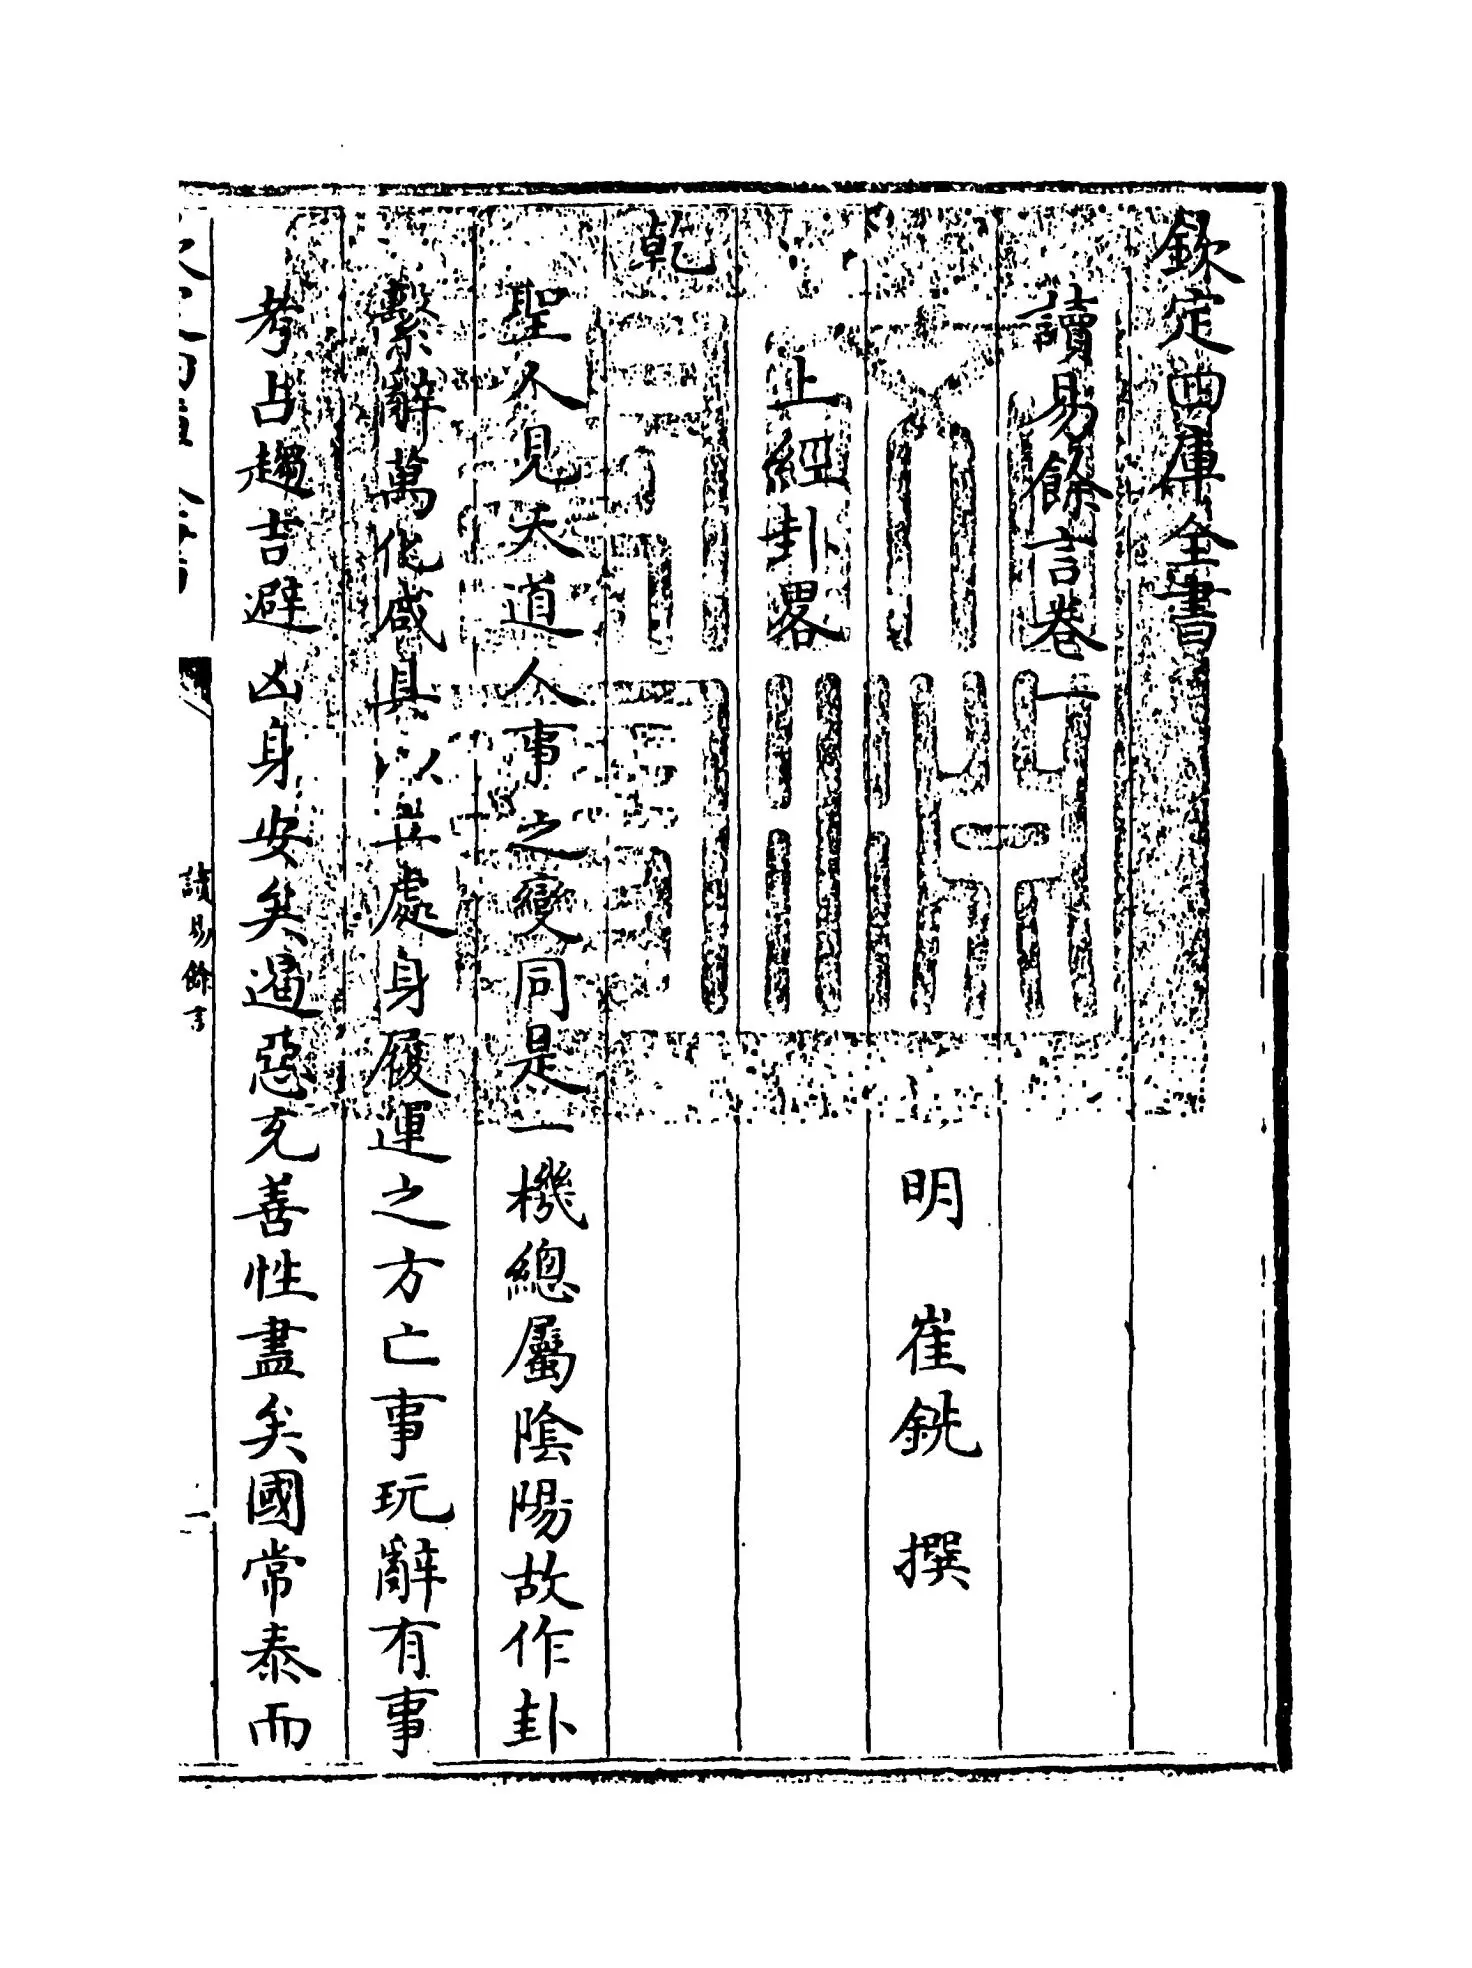 欽定四庫全書
讀易餘言卷一
明 崔銑 撰
上經卦畧
乾
聖人見天道人事之變同是一機總屬陰陽故作卦
繫辭萬化咸具以其處身履運之方亡事玩辭有事
考占趨吉避凶身安矣遏惡充善性盡矣國常泰而
讀易餘言
一